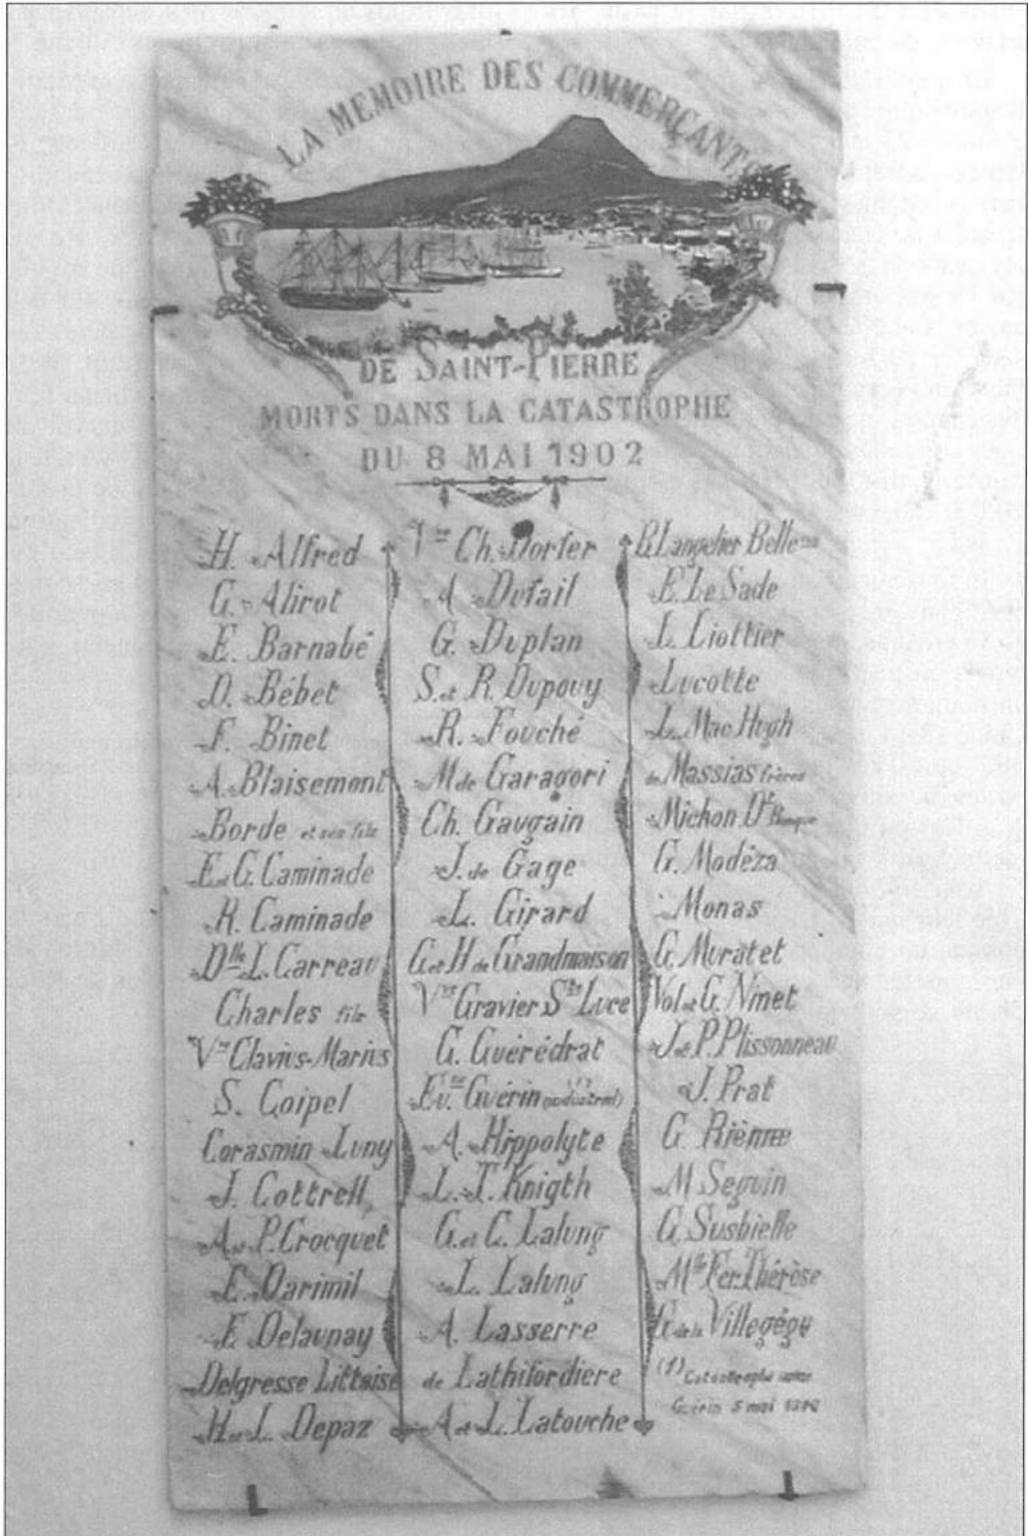 LA MEMOIRE DES COMMERÇANTS
DE SAINT-PIERRE
MORTS DANS LA CATASTROPHE
DU 8 MAI 1902
H. Alfred
G. Alirot
E. Barnabé
D. Bébet
F. Binet
A. Blaisemont
Borde et ses fils
E. et G. Caminade
R. Caminade
Dlle L. Carreau
Charles fils
Vve Clavius-Marius
S. Coipel
Corasmin Luny
J. Cottrell
A. et P. Crocquet
E. Darimil
E. Delaunay
Delgresse Littaise
H. et L. Depaz
Vve Ch. Dorfer
A. Dufail
G. Duplan
S. et R. Dupouy
R. Fouché
M. de Garagori
Ch. Gaugain
J. de Gage
L. Girard
G. et H. de Grandmaison
Vve Gravier Ste Luce
G. Guérédrat
Guérin (industriel)
A. Hippolyte
L. J. Knigth
G. et C. Lalung
L. Lalung
A. Lasserre
de Lathifordiere
A et L. Latouche
Langelier Belle
E. Le Sade
L. Liottier
Lucotte
L. Mac Hugh
de Massias frères
Michon Dr Banque
G. Modéza
Monas
G. Muratet
Vol et G. Ninet
J. et P. Plissonneau
J. Prat
G.
M Seguin
G. Susbielle
Mlle Fer. Thérèse
G. de la Villegégu
(1) Catastrophe usine
Guérin 5 mai